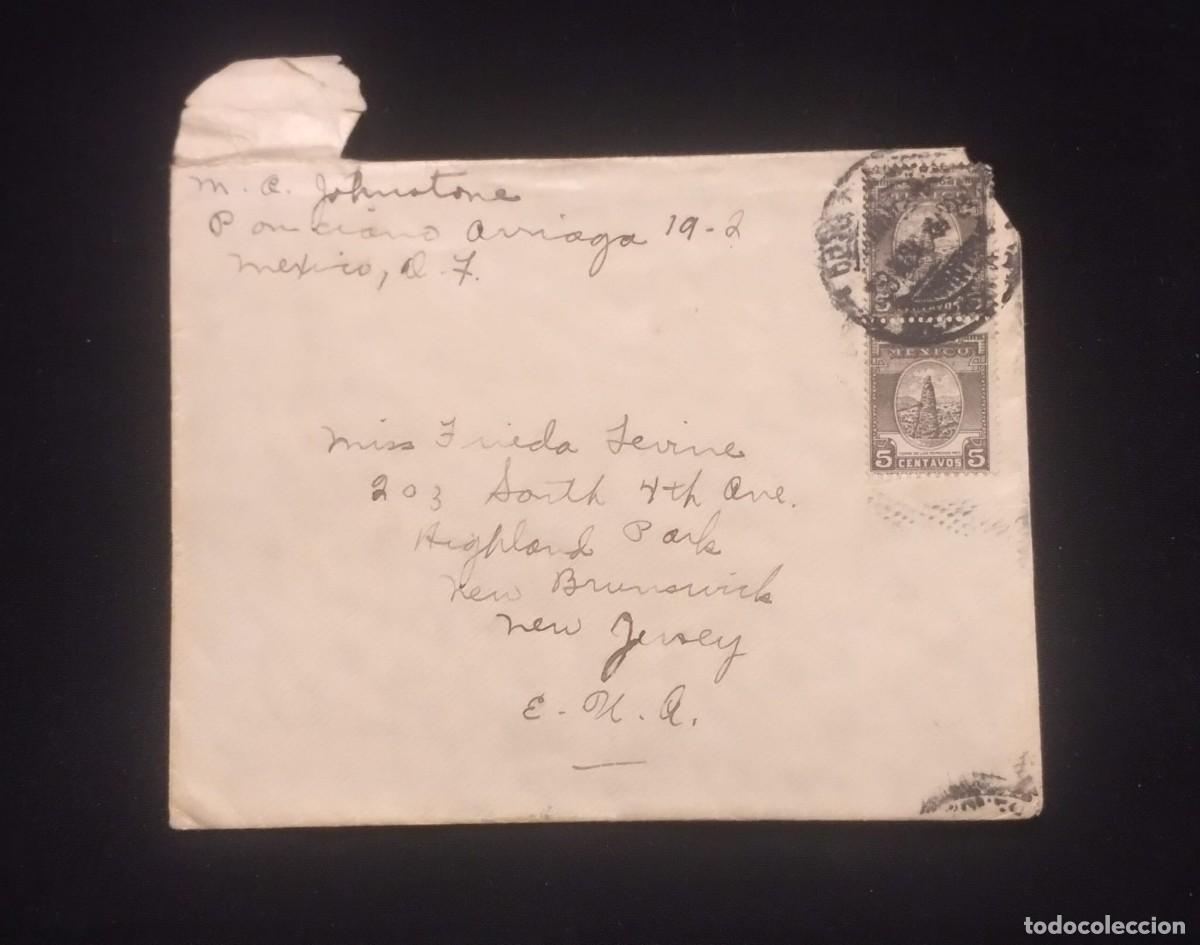 M. C. Johnstone
Ponciano Arriaga 19-2
Mexico, D. F.
MEXICO
5 CENTAVOS 5
Miss Frieda Levine
203 South 4th Ave.
Highland Park
New Brunswick
New Jersey
E. U. A.
todocoleccion